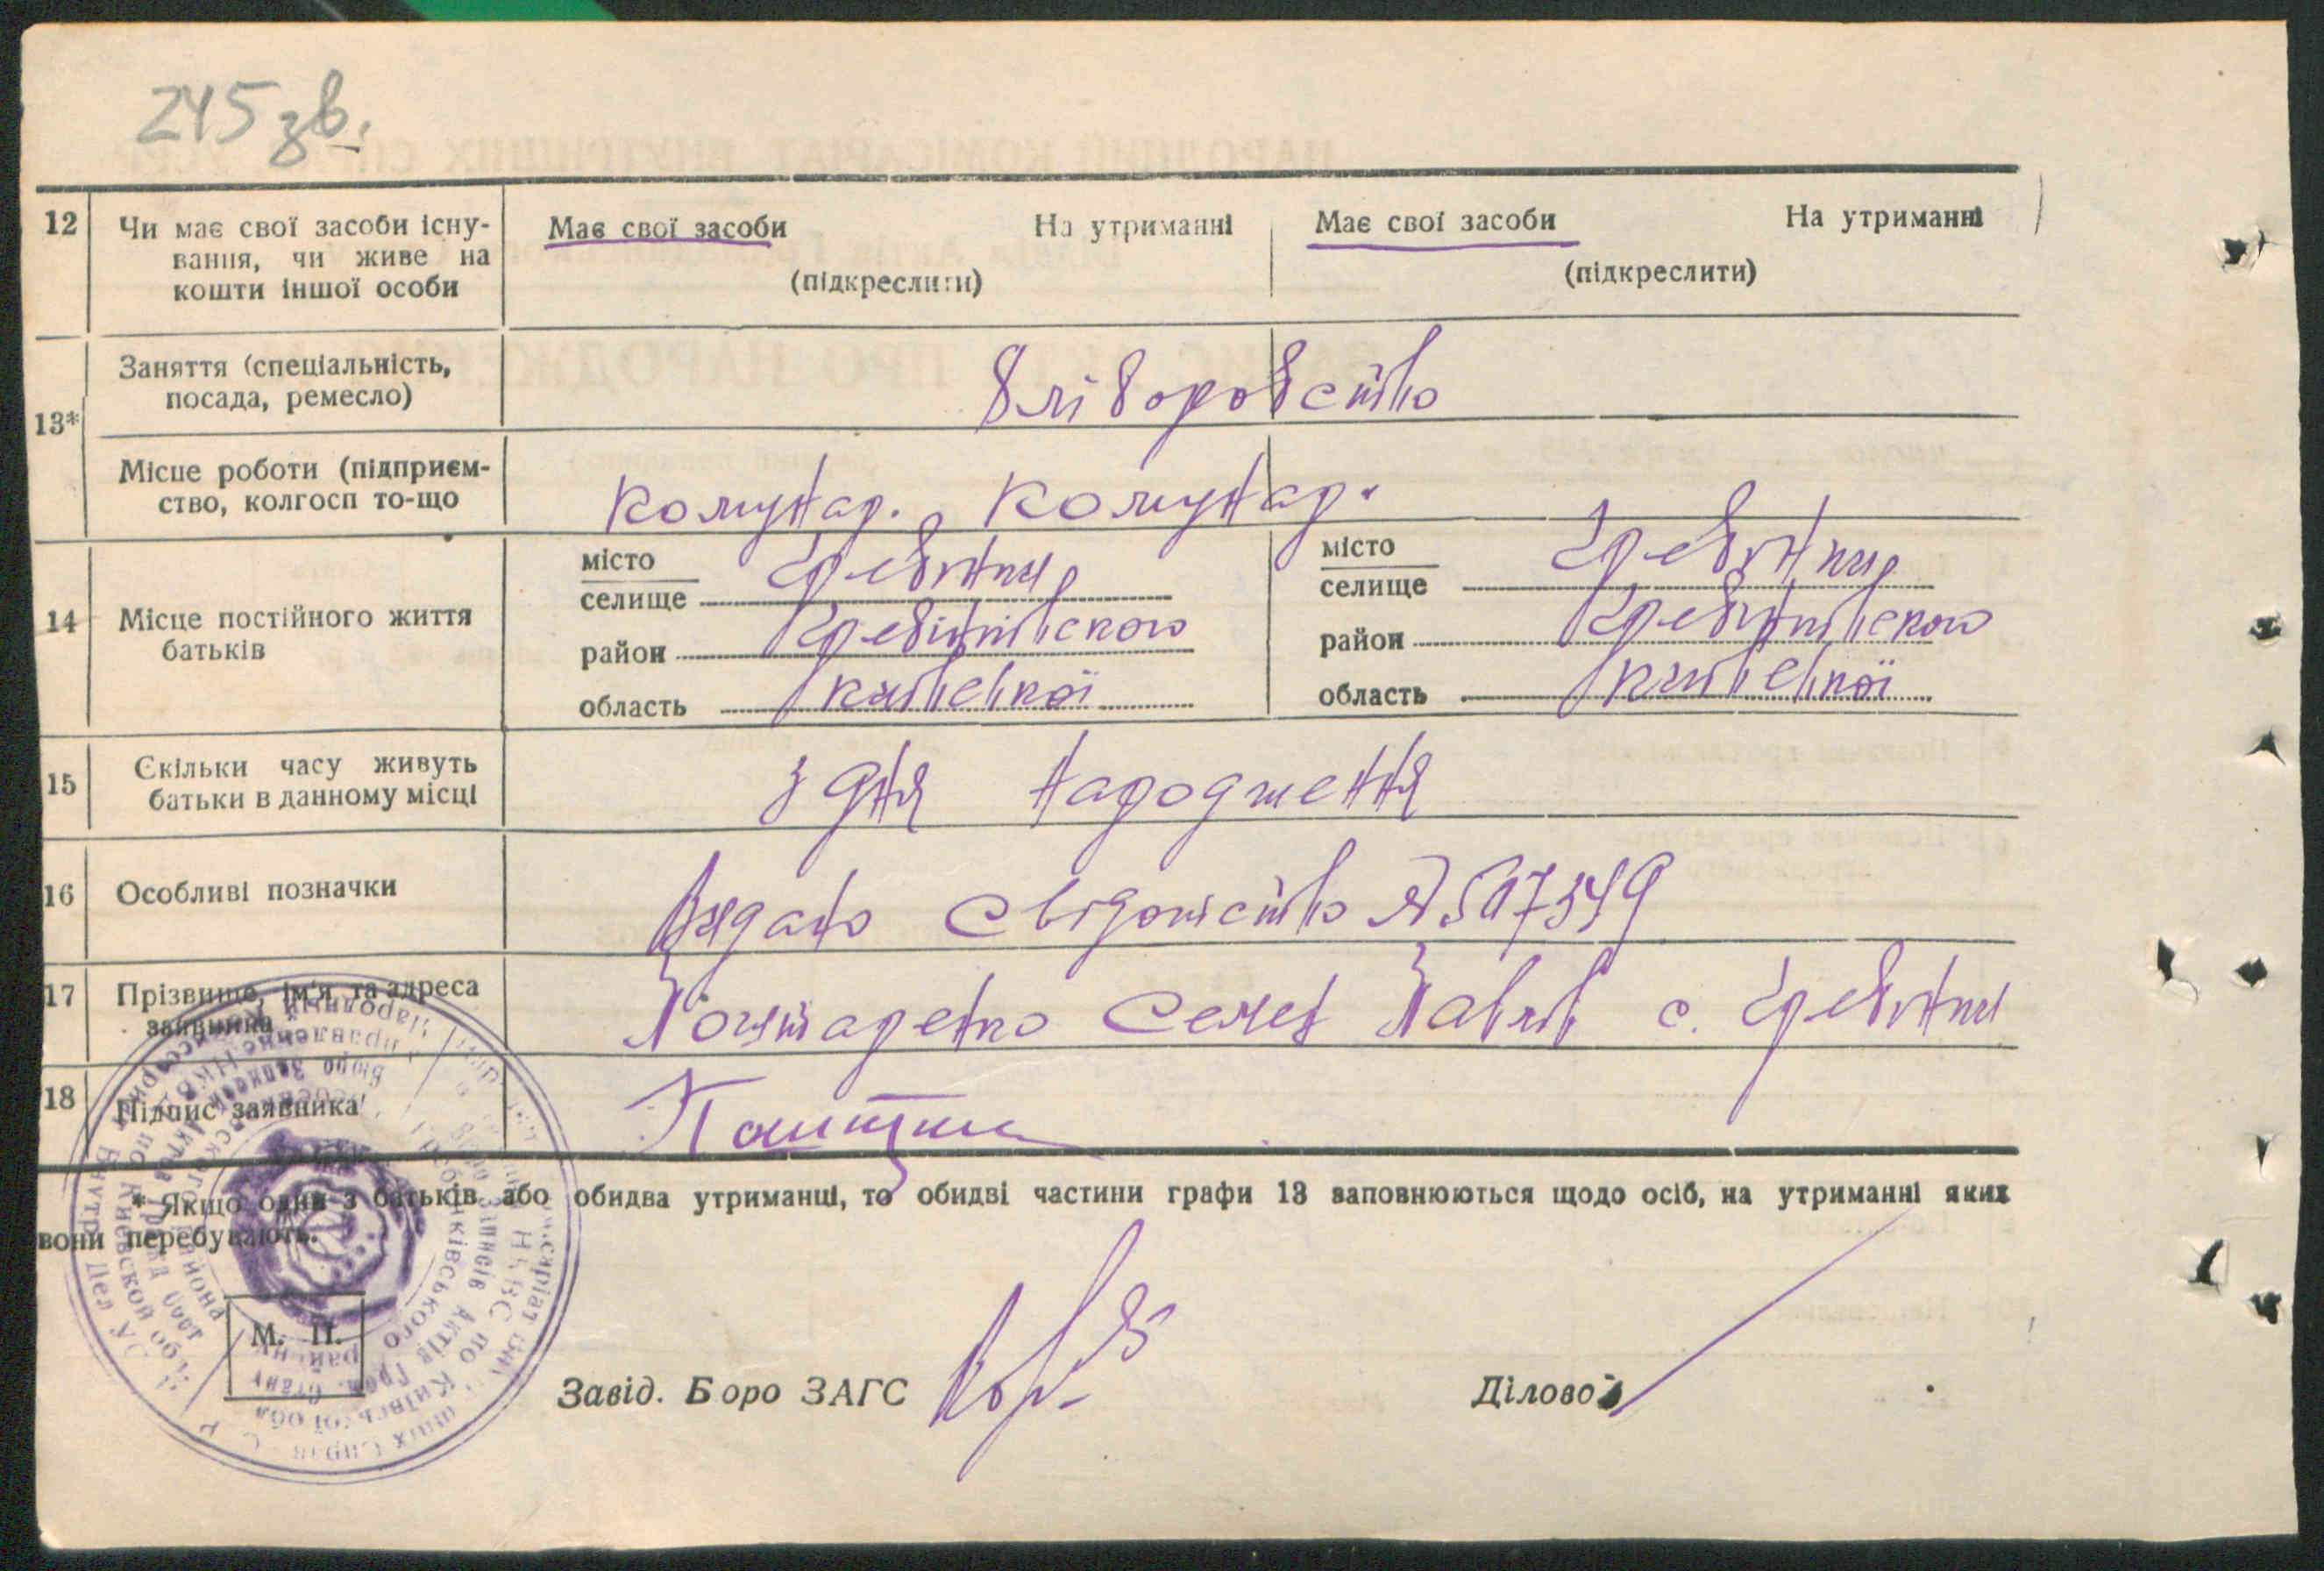 245 зв.
12 Чи має свої засоби існу-
вання, чи живе на
кошти іншої особи
Має свої засоби На утриманні
(підкреслити)
Має свої засоби На утриманні
(підкреслити)
13*
Заняття (спеціальність,
посада, ремесло)
хліборобство
Місце роботи (підприєм-
ство, колгосп то-що
комунар. комунар.
14 Місце постійного життя
батьків
місто
селище Гребінки
район Гребінківского
область київської
місто
селище Гребінки
район Гребінківского
область київської
15 Скільки часу живуть
батьки в данному місці
з дня народження
16 Особливі позначки
Видано свідоцтво
17 Прізвище, ім'я та адреса
заявника
Семен Павлів с. Гребінки
18 Підпис заявника
* Якщо один з батьків або обидва утриманці, то обидві частини графи 13 заповнюються щодо осіб, на утриманні яких
вони перебувають.
М. П.
Завід. Бюро ЗАГС
Діловод